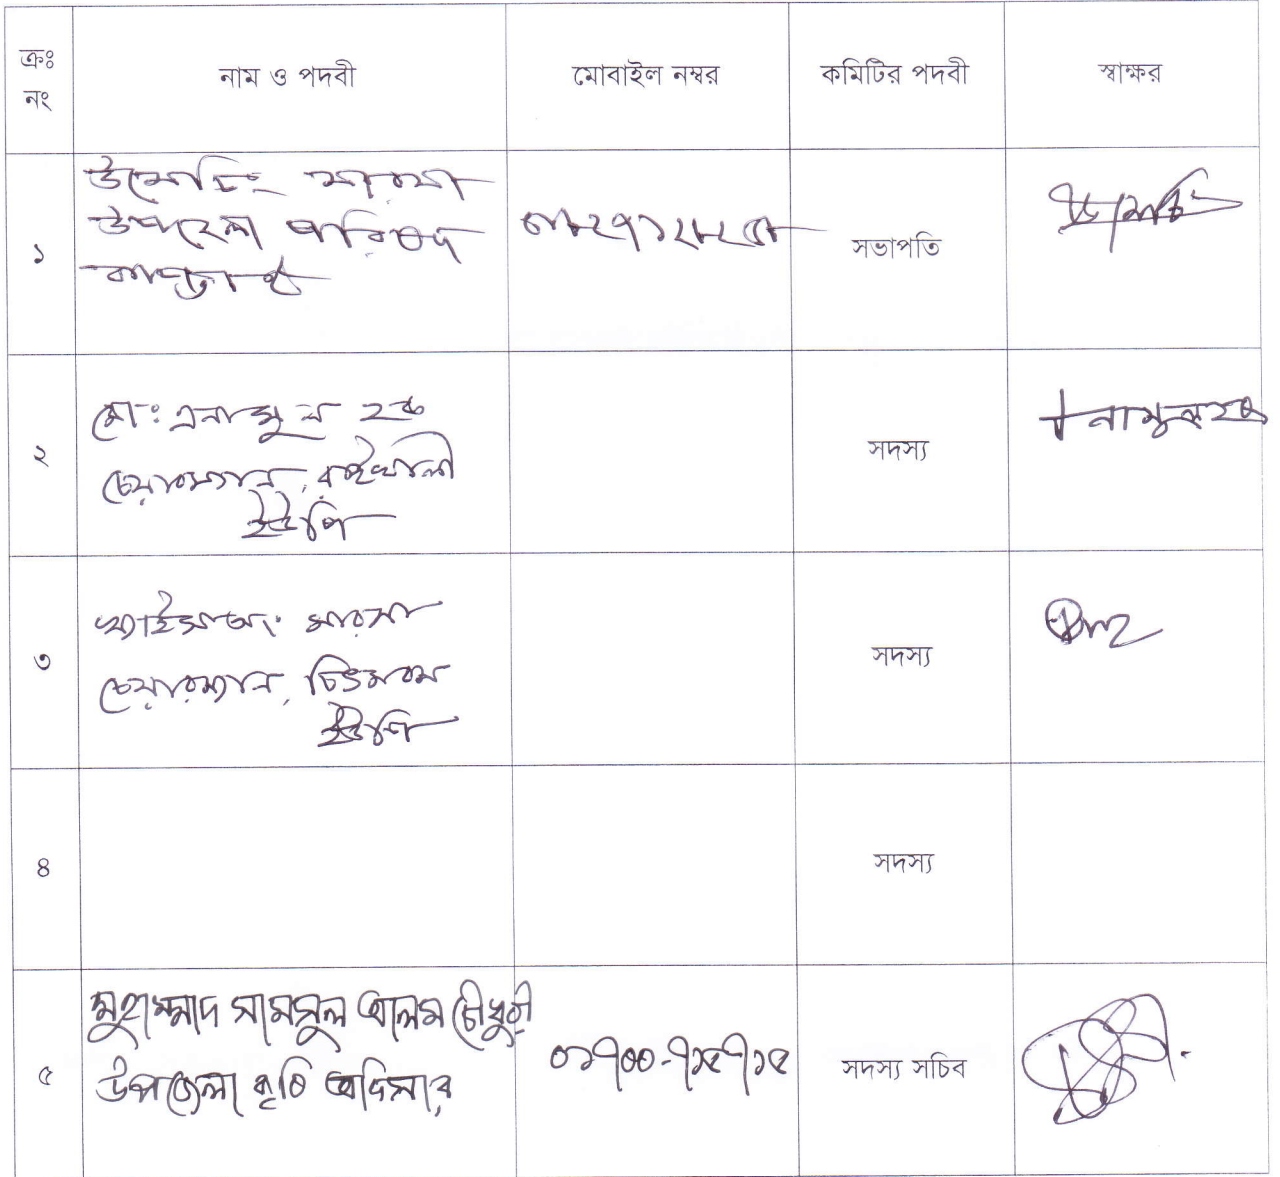 ক্রঃ
নং
নাম ও পদবী
মোবাইল নম্বর
কমিটির পদবী
স্বাক্ষর
১
উমেচিং মারমা
উপজেলা পরিষদ
কাপ্তাই
সভাপতি
২
মো: এনামুল হক
চেয়ারম্যান, রাইখালী
ইউপি
সদস্য
নামুল হক
৩
মারমা
চেয়ারম্যান, চিৎমরম
ইউপি
সদস্য
৪
সদস্য
৫
মুহাম্মাদ সামসুল আলম চৌধুরী
উপজেলা কৃষি অফিসার
০১৭০০-৭১৫৭১৫
সদস্য সচিব